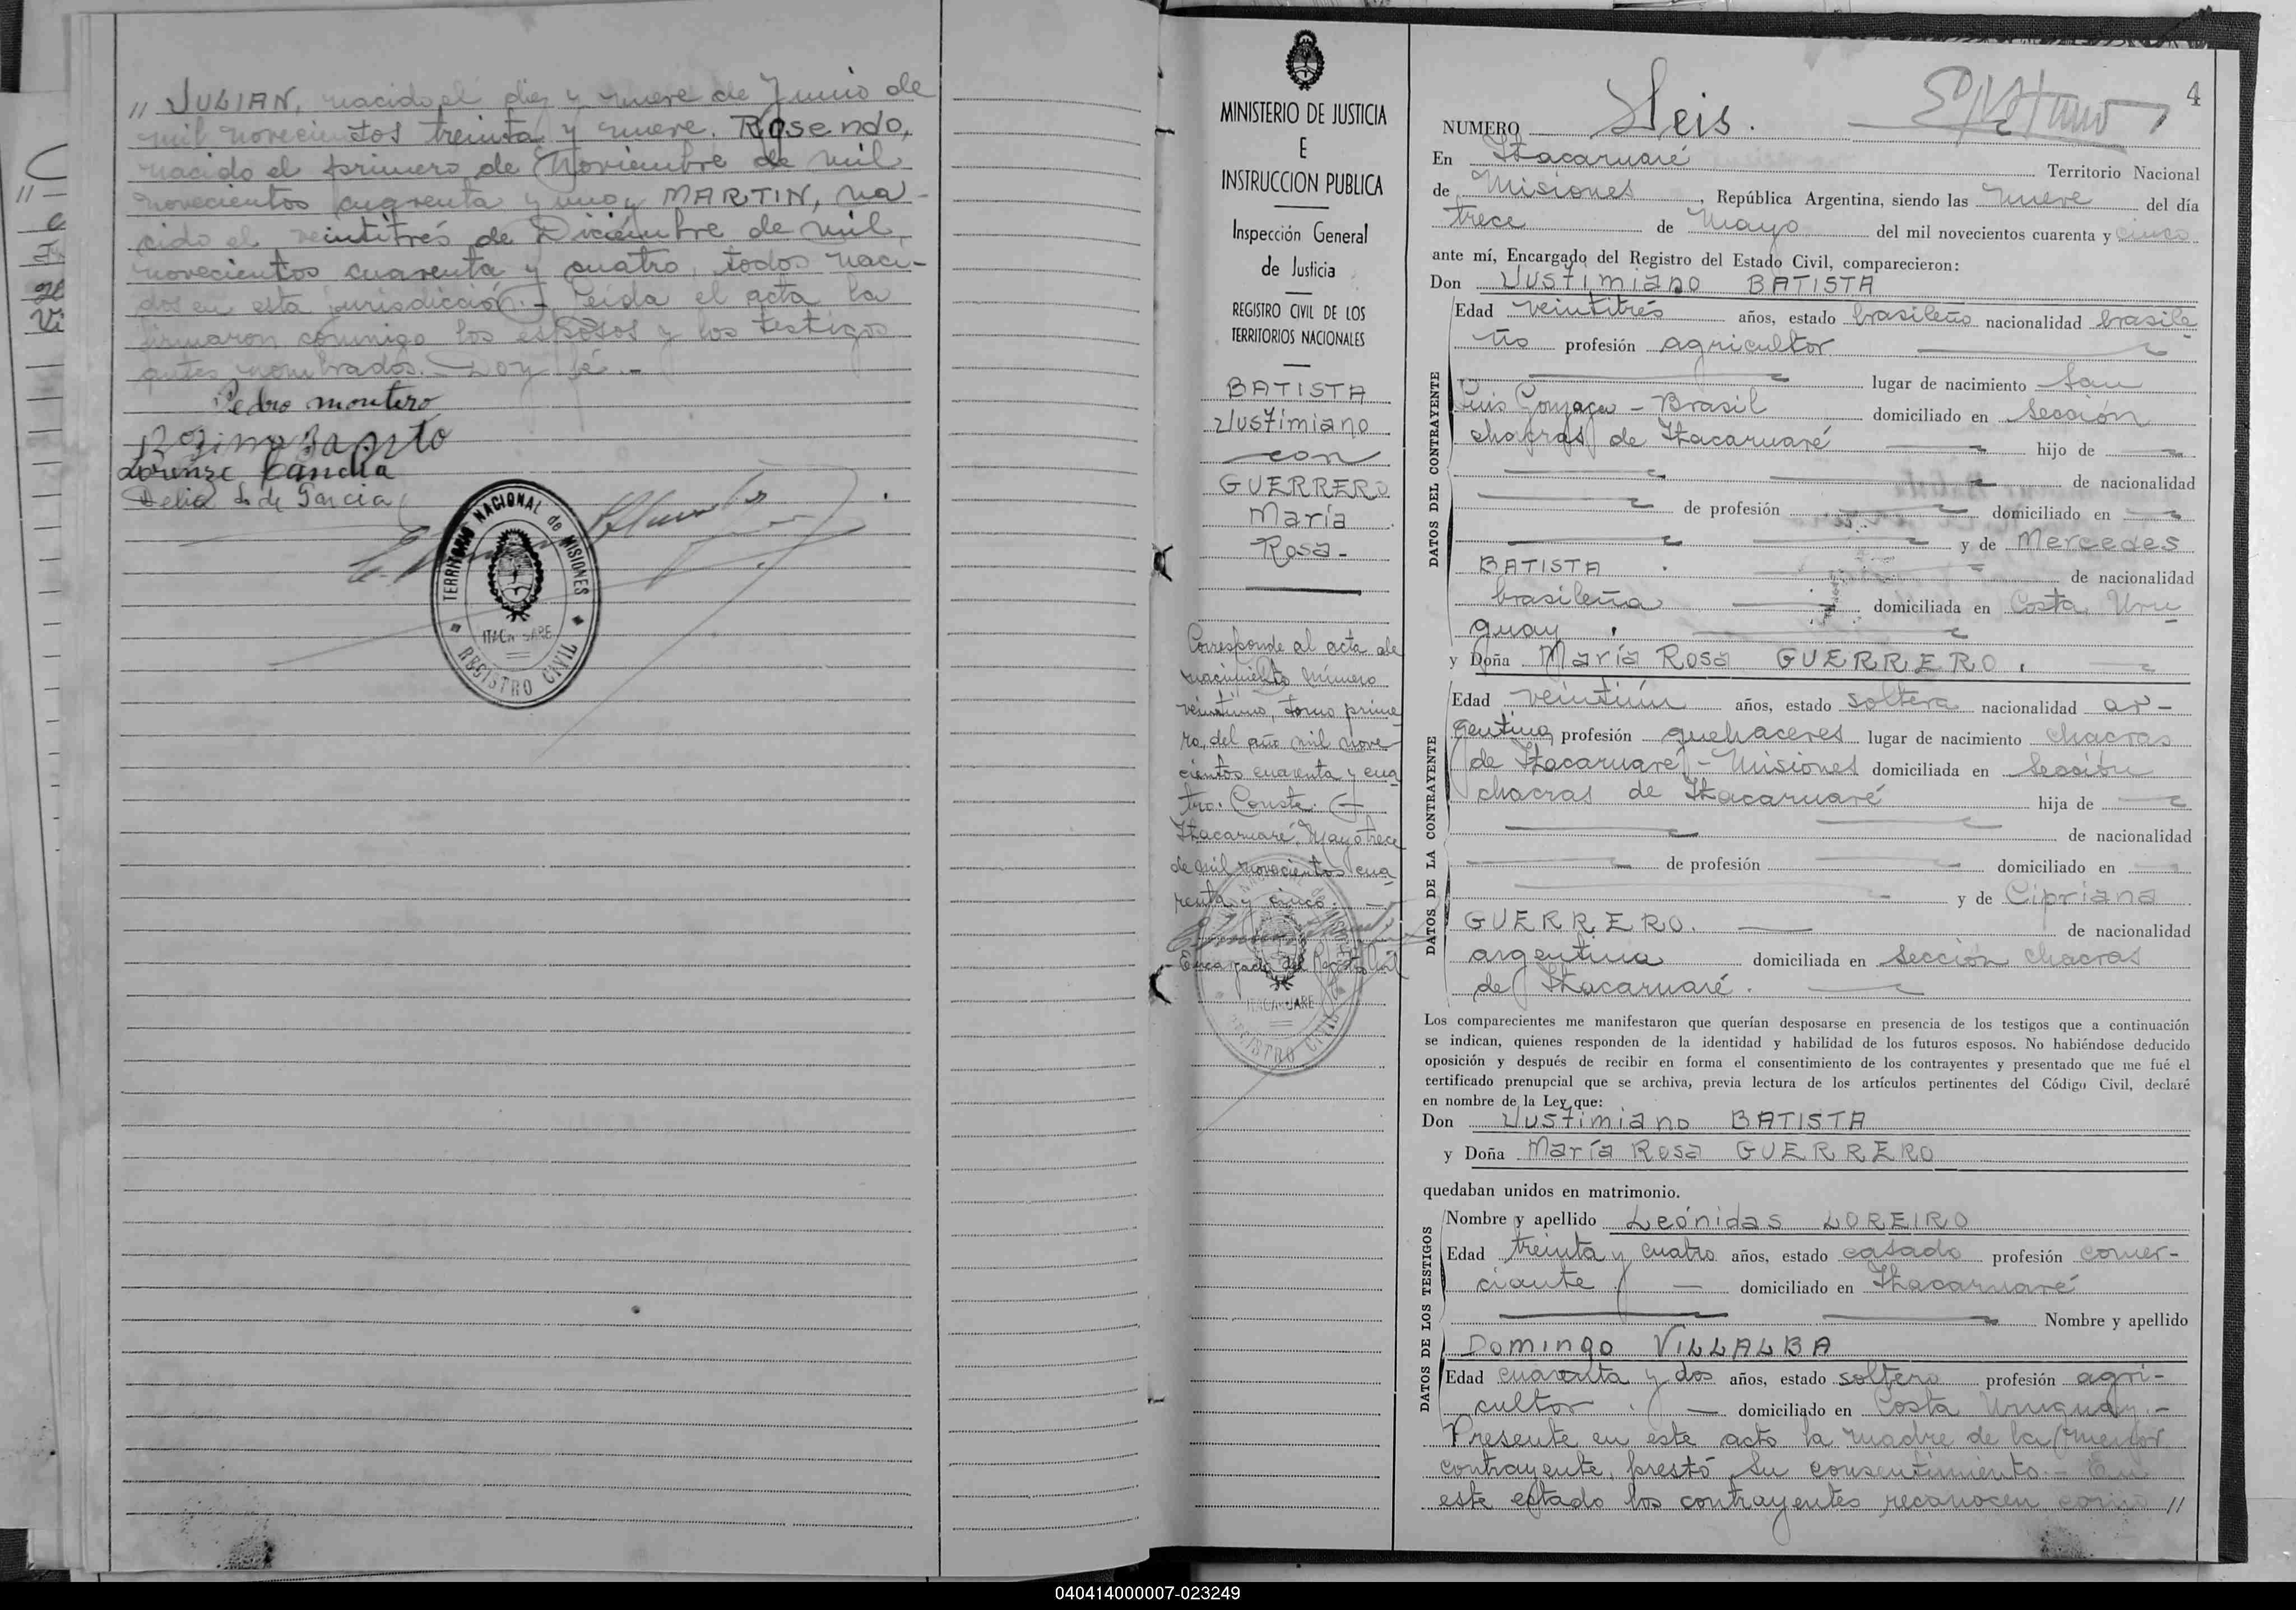 " JULIAN, nacido el diez y nueve de Junio de
mil novecientos treinta y nueve. Rosendo,
nacido el primero de Noviembre de mil
novecientos cuarenta y uno y MARTIN, na-
cido el veintitrés de Diciembre de mil
novecientos cuarenta y cuatro, todos naci-
dos en esta jurisdicción.- Leída el acta la
firmaron conmigo los esposos y los testigos
antes nombrados. Doy fé.-
Pedro montero
Delia L. de Garcia
TERRITORIO NACIONAL de MISIONES
REGISTRO CIVIL
MINISTERIO DE JUSTICIA
E
INSTRUCCION PUBLICA
Inspección General
de Justicia
REGISTRO CIVIL DE LOS
TERRITORIOS NACIONALES
BATISTA
Justimiano
con
GUERRERO
María
Rosa-
Corresponde al acta de
nacimiento número
veintiuno, tomo prime-
ro, del año mil nove-
cientos cuarenta y cua-
tro. Conste.-
Itacaruaré, Mayo trece
de mil novecientos cua-
renta y cinco.-
Encargado del Registro Civil
REGISTRO CIVIL
4
NUMERO Seis.
En Itacaruaré Territorio Nacional
de Misiones, República Argentina, siendo las nueve del día
trece de Mayo del mil novecientos cuarenta y cinco
ante mí, Encargado del Registro del Estado Civil, comparecieron:
Don Justimiano BATISTA
DATOS DEL CONTRAYENTE
Edad veintitrés años, estado brasileño nacionalidad brasile-
ño profesión agricultor
lugar de nacimiento San
Luis Gonzaga - Brasil domiciliado en Sección
chacras de Itacaruaré hijo de
de nacionalidad
de profesión domiciliado en
y de Mercedes
BATISTA de nacionalidad
brasileña domiciliada en Costa Uru-
guay
y Doña María Rosa GUERRERO.
DATOS DE LA CONTRAYENTE
Edad veintiún años, estado soltera nacionalidad ar-
gentina profesión quehaceres lugar de nacimiento chacras
de Itacaruaré - Misiones domiciliada en Sección
chacras de Itacaruaré hija de
de nacionalidad
de profesión domiciliado en
y de Cipriana
GUERRERO. de nacionalidad
argentina domiciliada en Sección chacras
de Itacaruaré.
Los comparecientes me manifestaron que querían desposarse en presencia de los testigos que a continuación
se indican, quienes responden de la identidad y habilidad de los futuros esposos. No habiéndose deducido
oposición y después de recibir en forma el consentimiento de los contrayentes y presentado que me fué el
certificado prenupcial que se archiva, previa lectura de los artículos pertinentes del Código Civil, declaré
en nombre de la Ley que:
Don Justimiano BATISTA
y Doña María Rosa GUERRERO
quedaban unidos en matrimonio.
DATOS DE LOS TESTIGOS
Nombre y apellido Leónidas LOREIRO
Edad treinta y cuatro años, estado casado profesión comer-
ciante - domiciliado en Itacaruaré
Nombre y apellido
Domingo VILLALBA
Edad cuarenta y dos años, estado soltero profesión agri-
cultor. - domiciliado en Costa Uruguay.-
Presente en este acto la madre de la menor
contrayente, prestó su consentimiento.- En
este estado los contrayentes reconocen como "
040414000007-023249